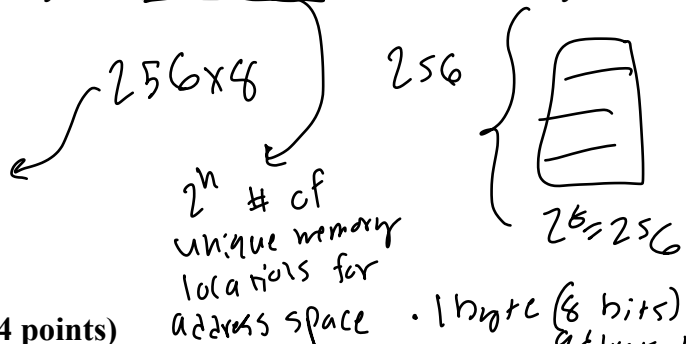 256x8
256
2^n # of
unique memory
locations for
address space
2^8=256
4 points)
. 1 byte (8 bits)